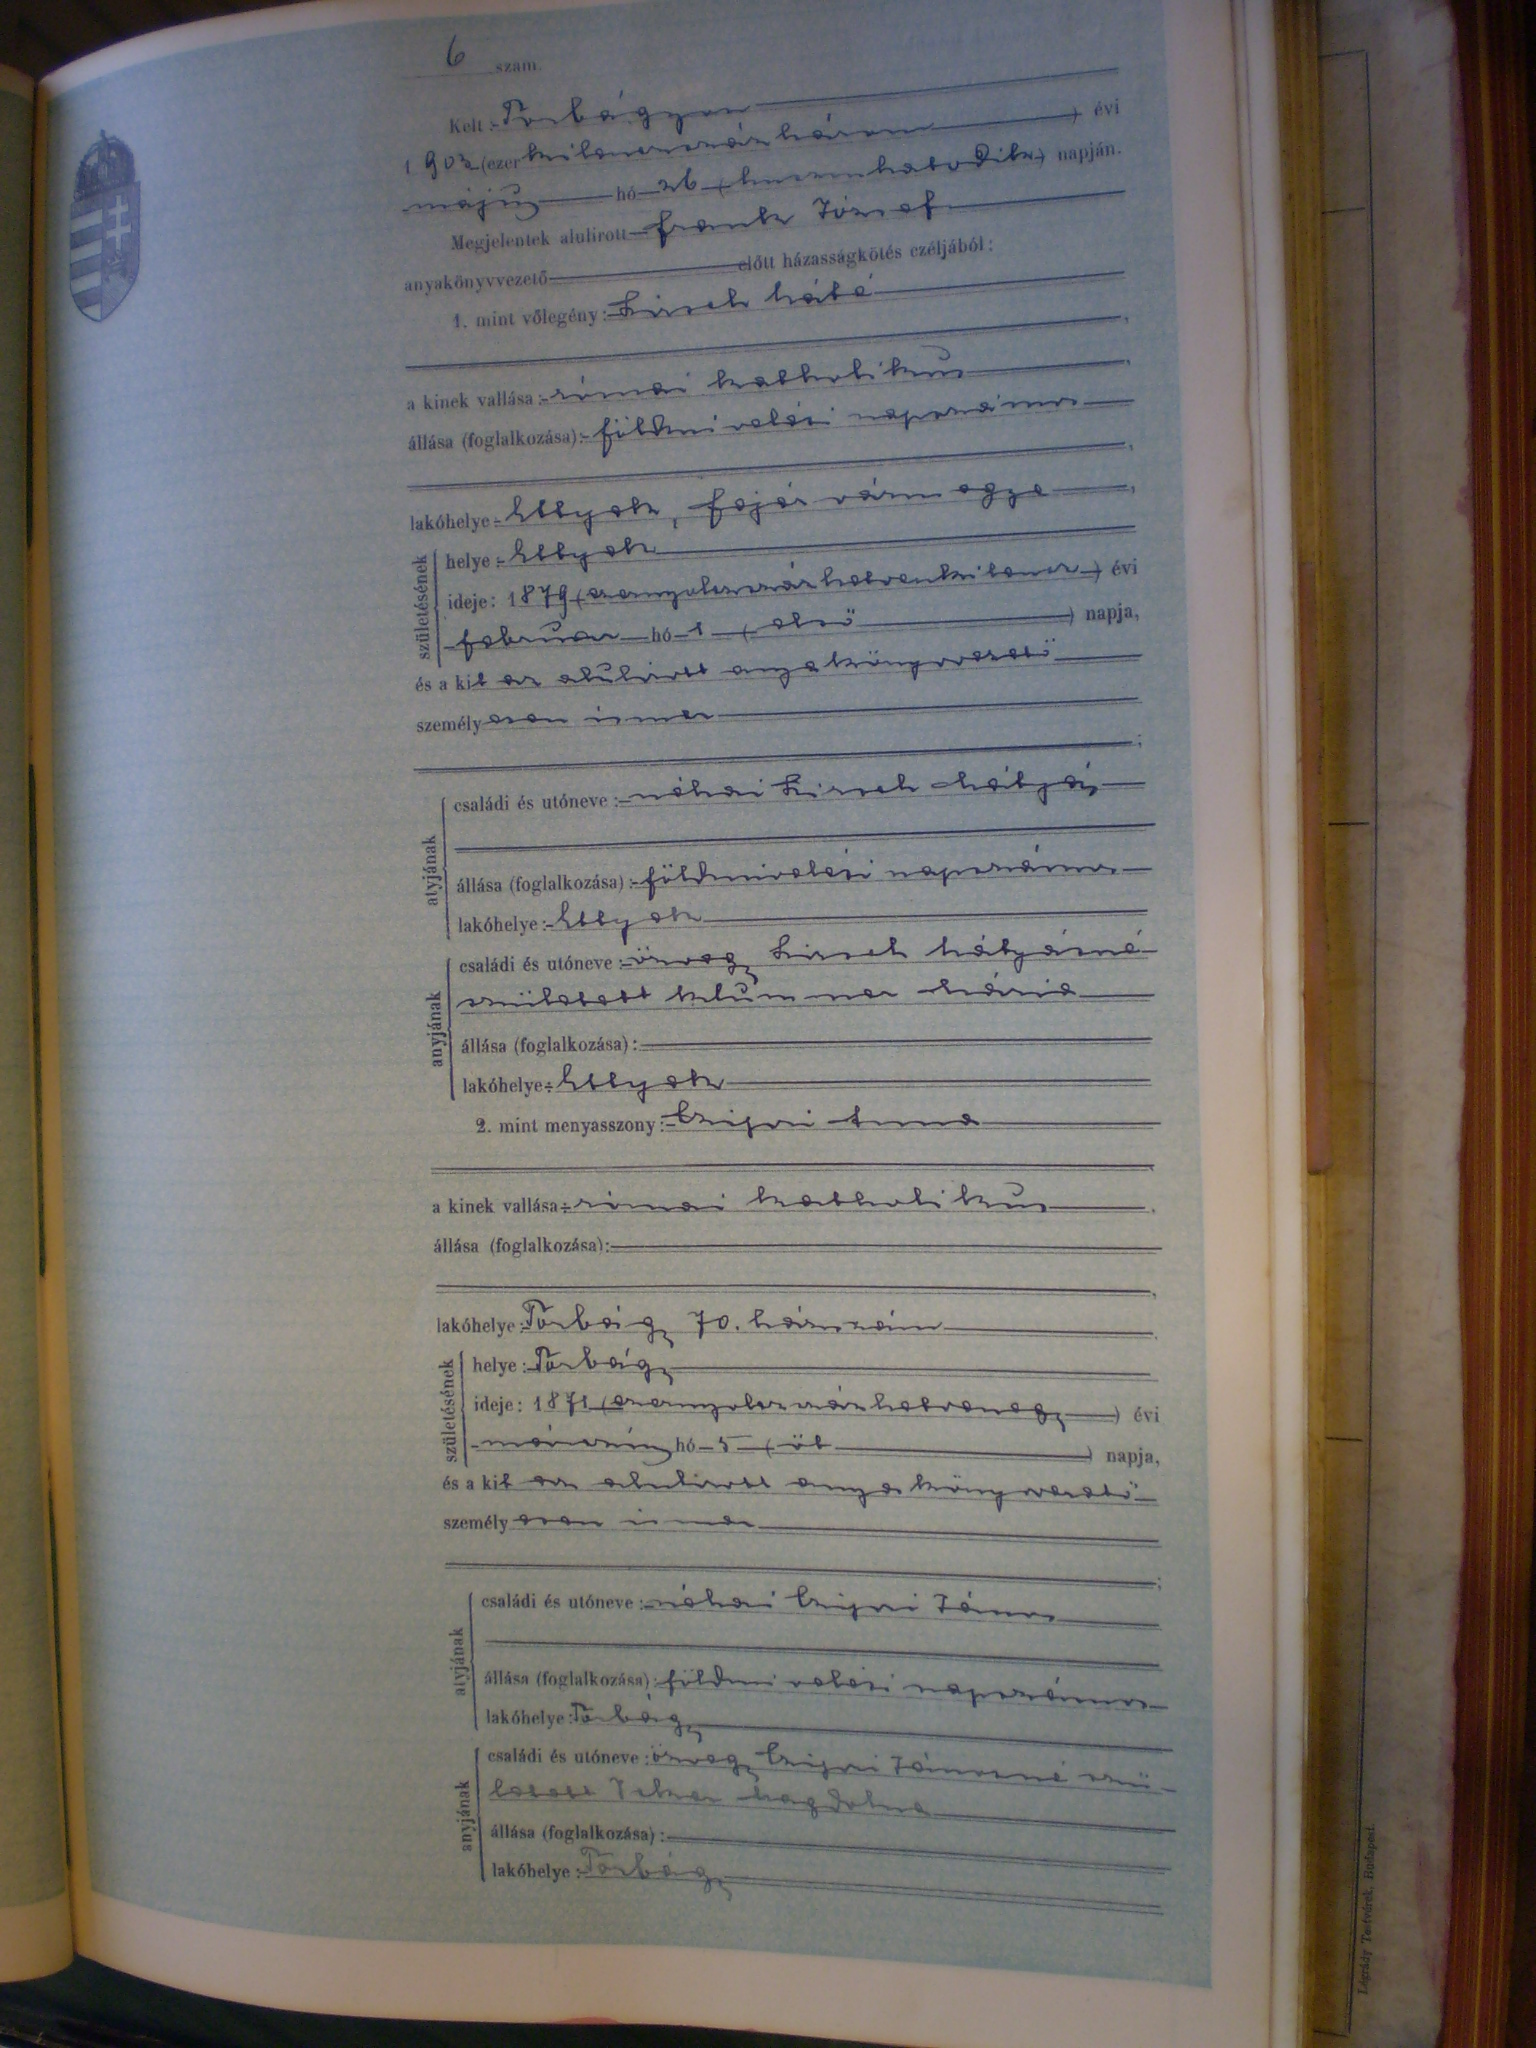 6 szám.
Kelt: Torbágyon
1903 (ezerkilencszázhárom) évi
május hó 26 (huszonhatodik) napján.
Megjelentek alulirott Frank József
anyakönyvvezető előtt házasságkötés czéljából:
1. mint vőlegény: Hirsch Máté
a kinek vallása: római katholikus
állása (foglalkozása): földmivelési napszámos
lakóhelye: Ettyek, Fejér vármegye
születésének
helye: Ettyek
ideje: 1879 (ezernyolczszázhetvenkilencz) évi
február hó 1 (első) napja,
és a kit az alulirott anyakönyvvezető
személyesen ismer
;
atyjának
családi és utóneve: néhai Hirsch Mátyás
állása (foglalkozása): földmivelési napszámos
lakóhelye: Ettyek
anyjának
családi és utóneve: özvegy Hirsch Mátyásné
született Klummer Mária
állása (foglalkozása):
lakóhelye: Ettyek
2. mint menyasszony: Czipri Anna
a kinek vallása: római katholikus
állása (foglalkozása):
lakóhelye: Torbágy 70. házszám
születésének
helye: Torbágy
ideje: 1871 (ezernyolczszázhetvenegy) évi
márczius hó 5 (öt) napja,
és a kit az alulirott anyakönyvvezető
személyesen ismer
;
atyjának
családi és utóneve: néhai Czipri János
állása (foglalkozása): földmivelési napszámos
lakóhelye: Torbágy
anyjának
családi és utóneve: özvegy Czipri Jánosné szü-
letett Magdolna
állása (foglalkozása):
lakóhelye: Torbágy
Légrády Testvérek, Budapest.